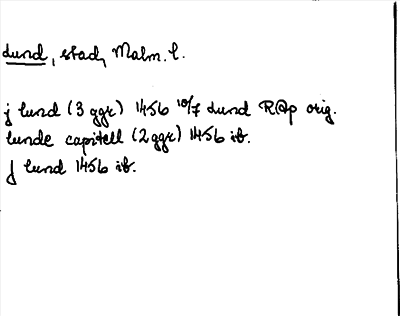 Lund, stad, Malm. l.
j lund (3 ggr) 1456 10/7 Lund RAp orig.
lunde capitell (2 ggr) 1456 ib.
J lund 1456 ib.